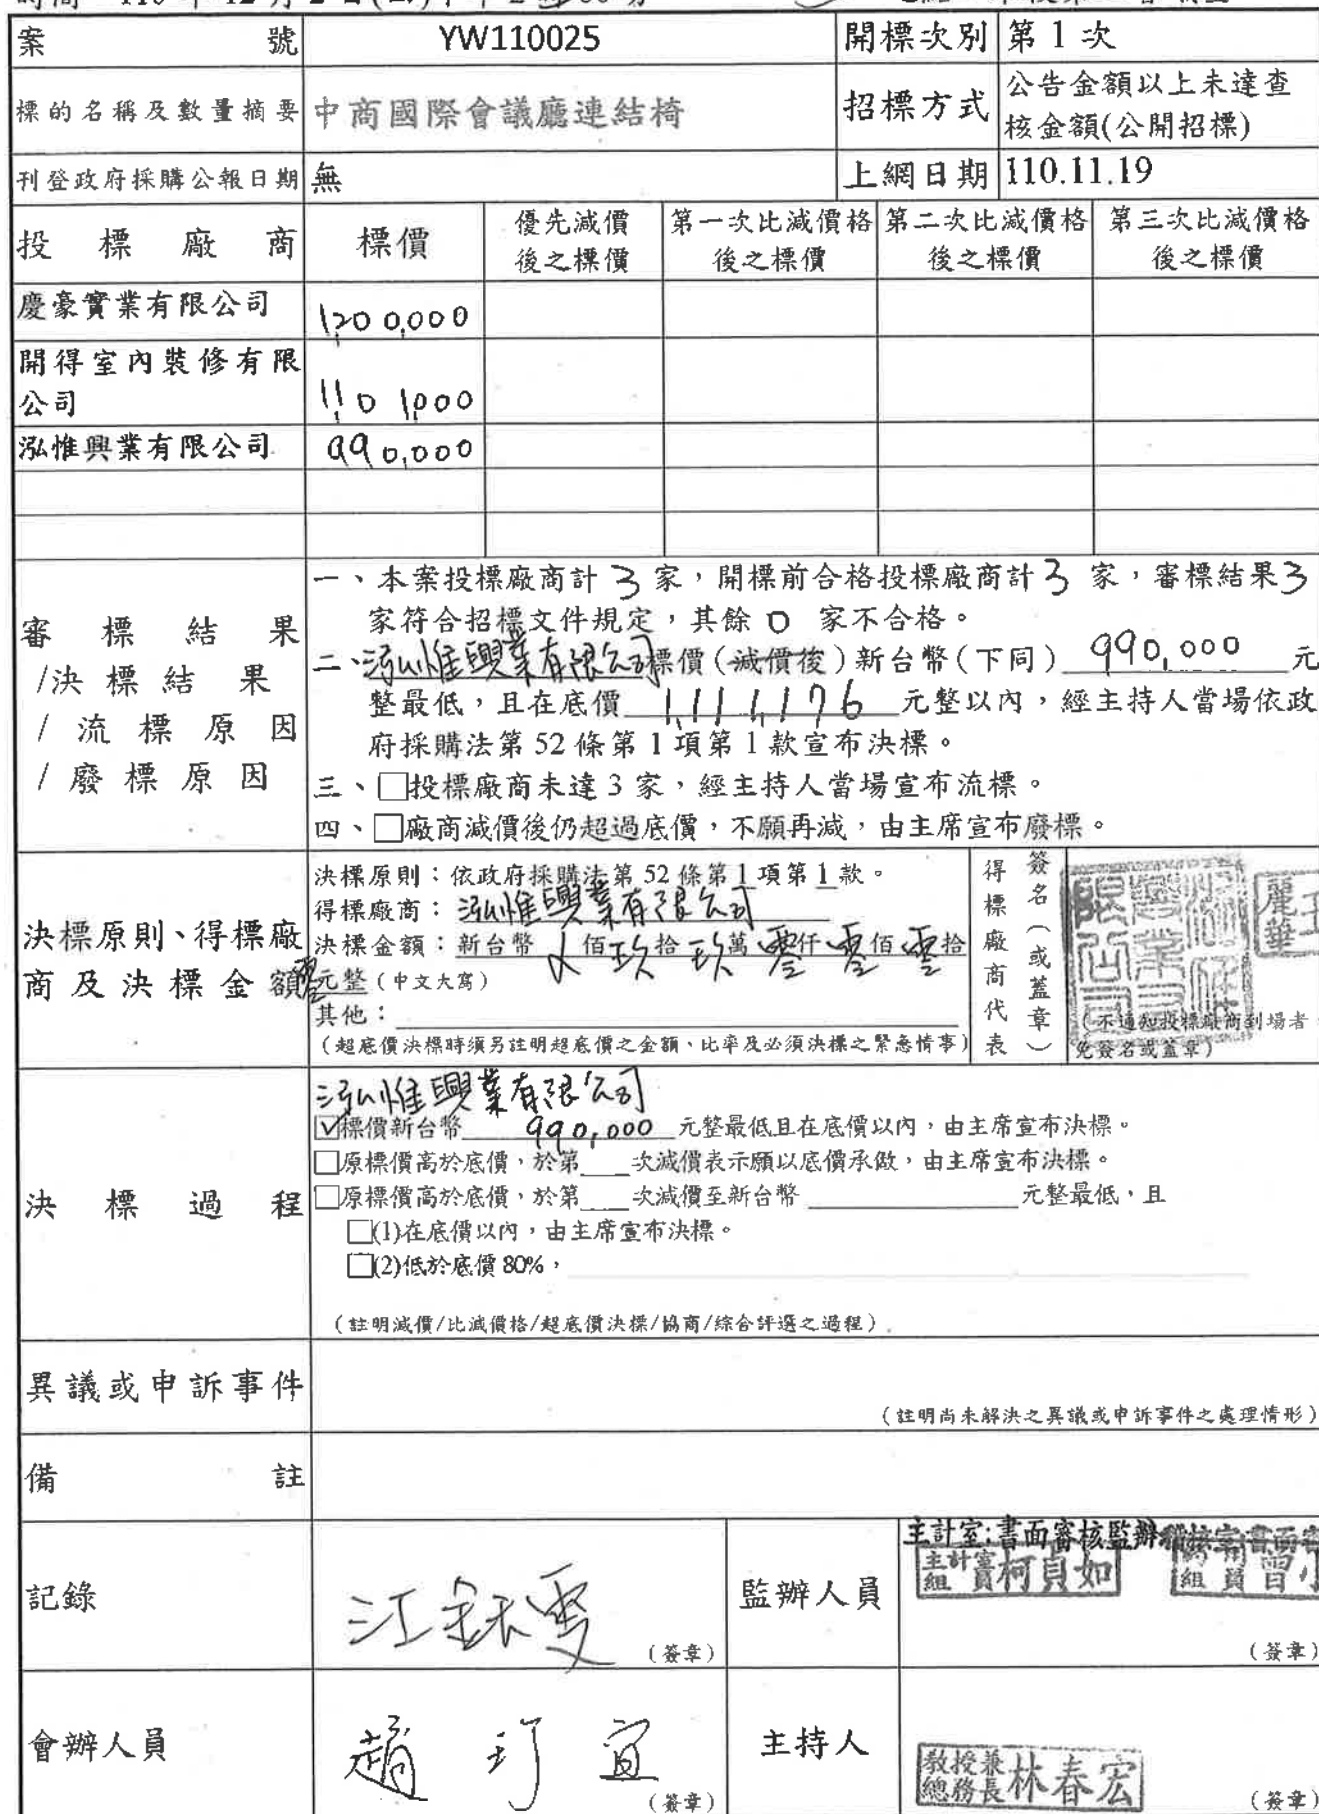 案號 YW110025 開標次別 第 1 次
標的名稱及數量摘要 中商國際會議廳連結椅 招標方式 公告金額以上未達查
核金額(公開招標)
刊登政府採購公報日期 無 上網日期 110.11.19
投標廠商 標價 優先減價 第一次比減價格 第二次比減價格 第三次比減價格
後之標價 後之標價 後之標價 後之標價
慶豪實業有限公司 1,200,000
開得室內裝修有限
公司 1,101,000
泓惟興業有限公司 990,000
審標結果
/決標結果
/流標原因
/廢標原因
一、本案投標廠商計 3 家，開標前合格投標廠商計 3 家，審標結果 3
家符合招標文件規定，其餘 0 家不合格。
二、泓惟興業有限公司標價(減價後)新台幣(下同) 990,000 元
整最低，且在底價 1,111,176 元整以內，經主持人當場依政
府採購法第 52 條第 1 項第 1 款宣布決標。
三、□投標廠商未達 3 家，經主持人當場宣布流標。
四、□廠商減價後仍超過底價，不願再減，由主席宣布廢標。
決標原則、得標廠
商及決標金額
決標原則：依政府採購法第 52 條第 1 項第 1 款。
得標廠商：泓惟興業有限公司
決標金額：新台幣 佰玖拾玖萬零仟零佰零拾
零元整(中文大寫)
其他：
(超底價決標時須另註明超底價之金額、比率及必須決標之緊急情事)
得標廠商代表
簽名(或蓋章)
(不通知投標廠商到場者
免簽名或蓋章)
決標過程
泓惟興業有限公司
☑標價新台幣 990,000 元整最低且在底價以內，由主席宣布決標。
□原標價高於底價，於第 次減價表示願以底價承做，由主席宣布決標。
□原標價高於底價，於第 次減價至新台幣 元整最低，且
□(1)在底價以內，由主席宣布決標。
□(2)低於底價 80%，
(註明減價/比減價格/超底價決標/協商/綜合評選之過程)
異議或申訴事件
(註明尚未解決之異議或申訴事件之處理情形)
備註
主計室:書面審核監辦
主計室
組員 柯貞如
記錄 監辦人員
(簽章) (簽章)
會辦人員 趙玎宜 主持人
教授兼
總務長 林春宏
(簽章) (簽章)